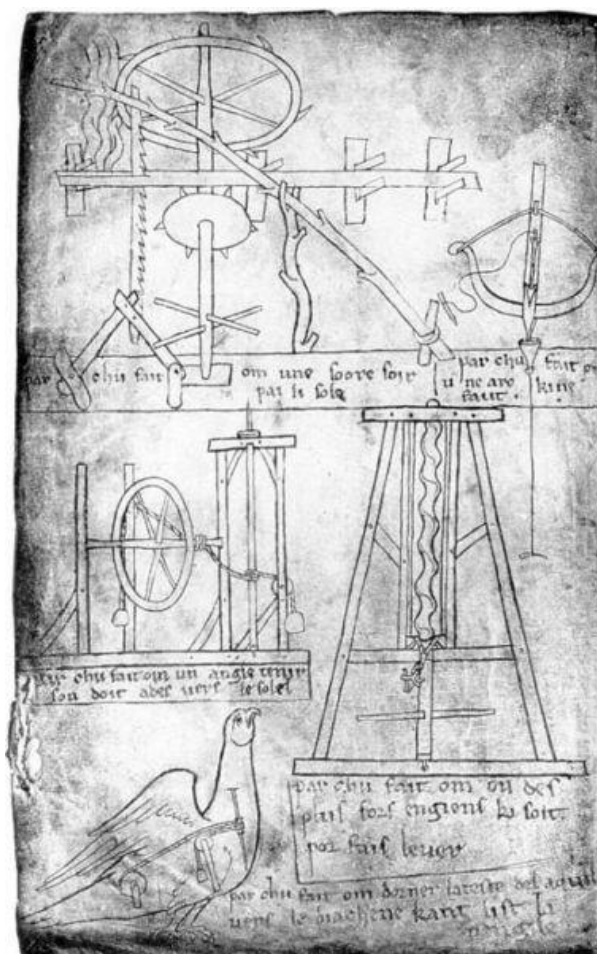 par chu fait om une soore soir
par li sole
par chu fait om
u ne arc
faut
kine
par chu fait om un angle tenir
son doit ades vers le solel
par chu fait om on des
plus fors engiens ki soit
por fais lever
par chu fait om dorner la teste del aquile
vers le diachene kant list li